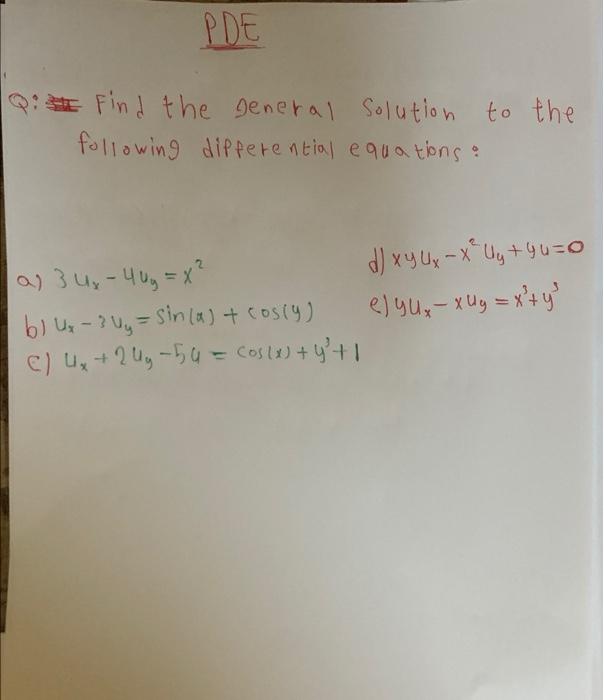 PDE
Q: Find the general solution to the
following differential equations:
a) 3u_x - 4u_y = x²
b) u_x - 3u_y = sin(x) + cos(y)
c) u_x + 2u_y - 5u = cos(x) + y³ + 1
d) xyu_x - x²u_y + yu = 0
e) yu_x - xu_y = x³ + y³